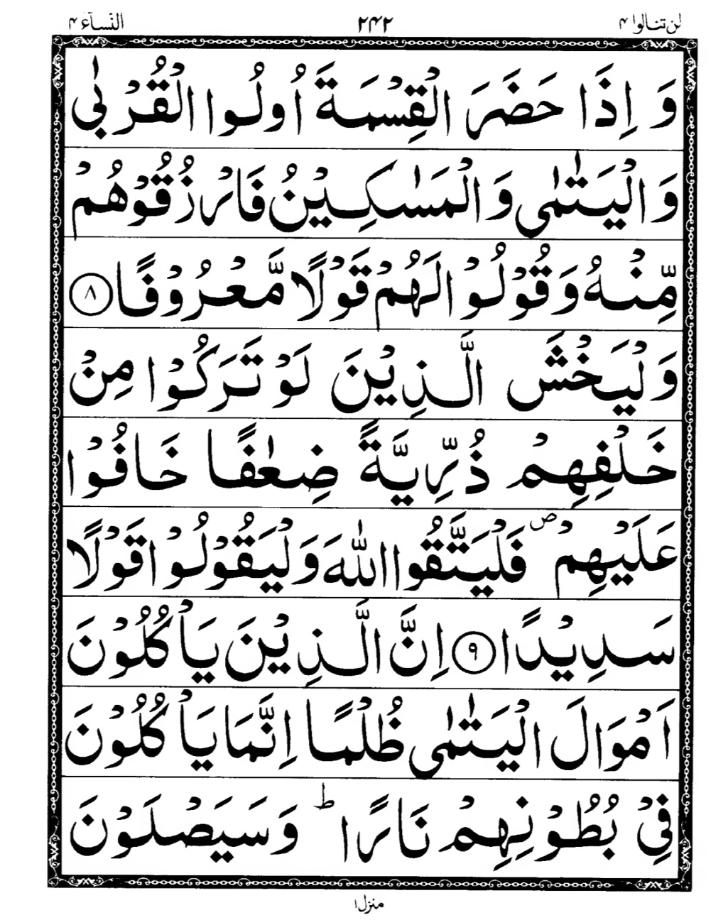 لن تنالوا ۴ ۲۴۲ النسآء ۴
وَ اِذَا حَضَرَ الْقِسْمَةَ اُولُوا الْقُرْبٰى
وَالْيَتٰمٰى وَالْمَسٰكِيْنُ فَارْزُقُوْهُمْ
مِّنْهُ وَقُوْلُوْا لَهُمْ قَوْلًا مَّعْرُوْفًا ۝۸
وَلْيَخْشَ الَّذِيْنَ لَوْ تَرَكُوْا مِنْ
خَلْفِهِمْ ذُرِّيَّةً ضِعٰفًا خَافُوْا
عَلَيْهِمْ ۪ فَلْيَتَّقُوا اللّٰهَ وَلْيَقُوْلُوْا قَوْلًا
سَدِيْدًا ۝۹ اِنَّ الَّذِيْنَ يَاْكُلُوْنَ
اَمْوَالَ الْيَتٰمٰى ظُلْمًا اِنَّمَا يَاْكُلُوْنَ
فِيْ بُطُوْنِهِمْ نَارًا ؕ وَسَيَصْلَوْنَ
منزل۱